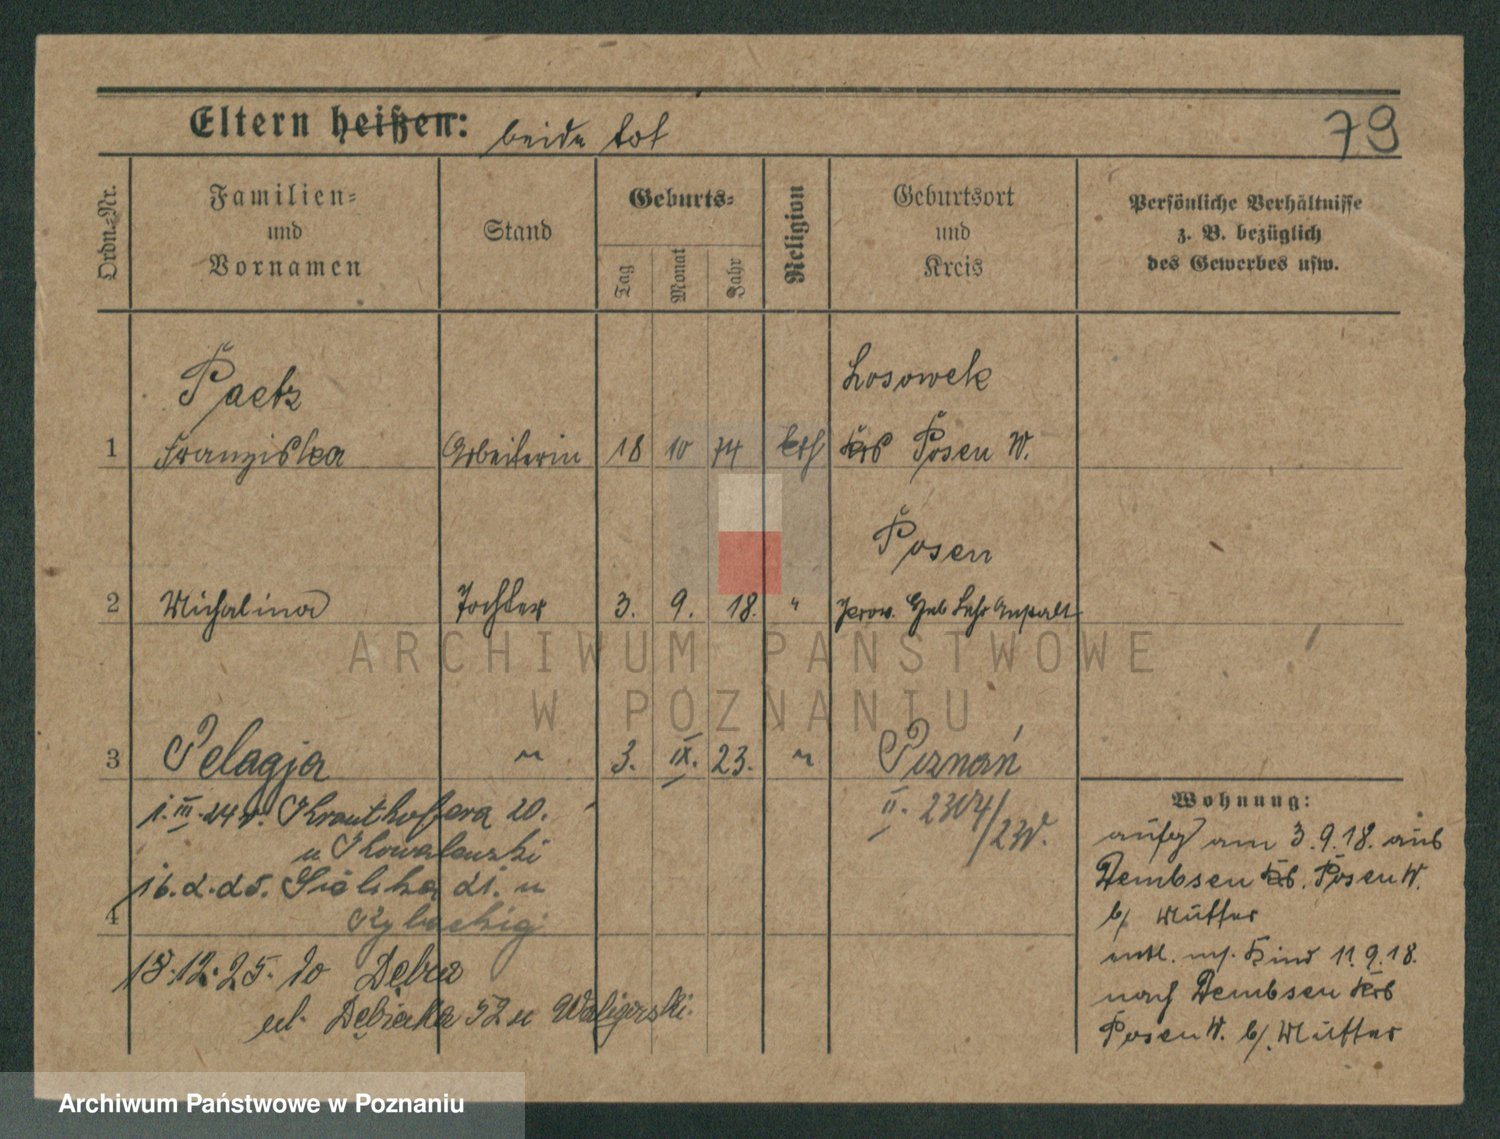 Eltern heißen: beide tot
79
Ordn.-Nr.
Familien-
und
Vornamen
Stand
Geburts-
Tag
Monat
Jahr
Religion
Geburtsort
und
Kreis
Persönliche Verhältnisse
z. B. bezüglich
des Gewerbes usw.
Paetz
Losowek
1 Franziska Arbeiterin 18 10 74 kth Krs Posen W.
Posen
2 Michalina Tochter 3. 9. 18. " Prov. Heb Lehr Anstalt
3 Pelagja " 3. IX. 23. " Poznań
II. 2304/23
1.III.24 r. Krauthofera 20.
u Kowalewski
16.2.25. Sielska 21. u
4
13.12.25. do Dębca
ul. Dębiecka 52 u Waligorski.
Wohnung:
am 3.9.18. aus
Dembsen Krs. Posen W.
b/ Mutter
entl. m. Kind 11.9.18.
nach Dembsen Krs
Posen W. b/. Mutter
ARCHIWUM PAŃSTWOWE
W POZNANIU
Archiwum Państwowe w Poznaniu